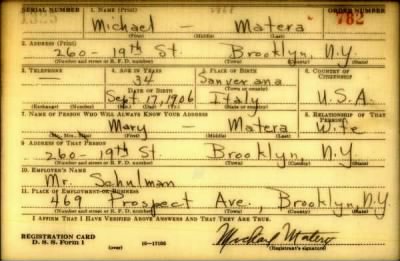 SERIAL NUMBER 1. NAME (Print) ORDER NUMBER
Michael - Matera 782
(First) (Middle) (Last)
2. ADDRESS (Print)
260 - 19th St. Brooklyn, N.Y.
(Number and street or R. F. D. number) (Town) (County) (State)
3. TELEPHONE 4. AGE IN YEARS 5. PLACE OF BIRTH 6. COUNTRY OF CITIZENSHIP
— 34
DATE OF BIRTH
Sept. 17, 1906 Italy U.S.A.
(Exchange) (Number) (Mo.) (Day) (Yr.) (State or country)
7. NAME OF PERSON WHO WILL ALWAYS KNOW YOUR ADDRESS 8. RELATIONSHIP OF THAT PERSON
Mary - Matera Wife
(Mr., Mrs., Miss) (First) (Middle) (Last)
9. ADDRESS OF THAT PERSON
260 - 19th St. Brooklyn, N.Y.
(Number and street or R. F. D. number) (Town) (County) (State)
10. EMPLOYER'S NAME
Mr. Schulman
11. PLACE OF EMPLOYMENT OR BUSINESS
469 Prospect Ave., Brooklyn, N.Y.
(Number and street or R. F. D. number) (Town) (County) (State)
I AFFIRM THAT I HAVE VERIFIED ABOVE ANSWERS AND THAT THEY ARE TRUE.
REGISTRATION CARD
D. S. S. Form 1 (over) 16-17105 Michael Matera
(Registrant's signature)